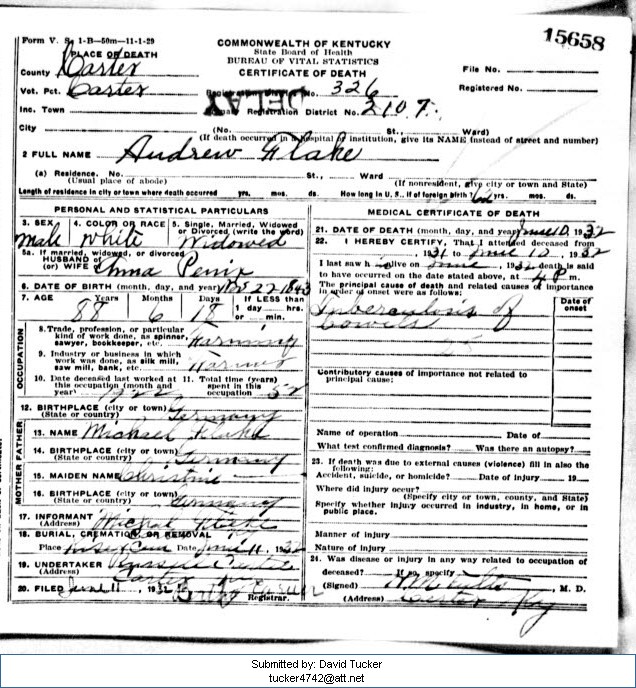 15658
Form V. S. 1-B—50m—11-1-29
COMMONWEALTH OF KENTUCKY
State Board of Health
BUREAU OF VITAL STATISTICS
CERTIFICATE OF DEATH
1 PLACE OF DEATH
County Carter
File No.
Vot. Pct. Carter
Registration District No. 326
Registered No.
DELAY
Inc. Town
Primary Registration District No. 2107
City (No. St., Ward)
(If death occurred in a hospital or institution, give its NAME instead of street and number)
2 FULL NAME Andrew Flake
(a) Residence. No. St., Ward
(Usual place of abode) (If nonresident, give city or town and State)
Length of residence in city or town where death occurred yrs. mos. ds. How long in U. S., if of foreign birth? 62 yrs. mos. ds.
PERSONAL AND STATISTICAL PARTICULARS
3. SEX Male
4. COLOR OR RACE White
5. Single, Married, Widowed or Divorced, (write the word) Widowed
5a. If married, widowed, or divorced
HUSBAND of
(or) WIFE of Anna Penix
6. DATE OF BIRTH (month, day, and year) 22 1843
7. AGE Years Months Days If LESS than
88 6 18 1 day hrs.
or min.
OCCUPATION
8. Trade, profession, or particular kind of work done, as spinner, sawyer, bookkeeper, etc. Farming
9. Industry or business in which work was done, as silk mill, saw mill, bank, etc.
10. Date deceased last worked at this occupation (month and year) 1922
11. Total time (years) spent in this occupation 52
12. BIRTHPLACE (city or town)
(State or country) Germany
FATHER
13. NAME Michael Flake
14. BIRTHPLACE (city or town)
(State or country) Germany
MOTHER
15. MAIDEN NAME Christine —
16. BIRTHPLACE (city or town)
(State or country) Germany
17. INFORMANT Michal Flake
(Address)
18. BURIAL, CREMATION OR REMOVAL
Place Date June 11, 1932
19. UNDERTAKER
(Address) Carter
20. FILED June 11, 1932
Registrar.
MEDICAL CERTIFICATE OF DEATH
21. DATE OF DEATH (month, day, and year) June 10, 1932
22. I HEREBY CERTIFY, That I attended deceased from
, 1931 to June 10, 1932
I last saw h alive on June , 1932 death is said
to have occurred on the date stated above, at 4 P m.
The principal cause of death and related causes of importance
in order of onset were as follows:
Date of onset
Tuberculosis of
bowels
Contributory causes of importance not related to
principal cause:
Name of operation Date of
What test confirmed diagnosis? Was there an autopsy?
23. If death was due to external causes (violence) fill in also the
following:
Accident, suicide, or homicide? Date of injury 19
Where did injury occur?
(Specify city or town, county, and State)
Specify whether injury occurred in industry, in home, or in
public place.
Manner of injury
Nature of injury
24. Was disease or injury in any way related to occupation of
deceased? If so, specify
(Signed) M. D.
(Address) Carter Ky
Submitted by: David Tucker
tucker4742@att.net